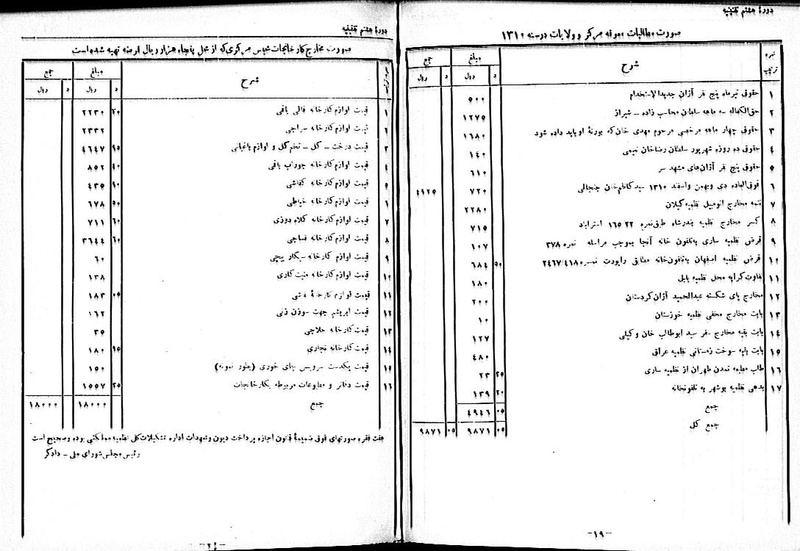 دورهٔ هشتم تقنینیه
صورت مطالبات معوقه مرکز و ولایات در سنه ۱۳۱۰
نمره ترتیب شرح مبلغ جمع
ریال د ریال د
۱ حقوق تیرماه پنج نفر آژان جدیدالاستخدام ۵۰۰
۲ حق‌الکفاله سه ماهه سلطان محاسب زاده - شیراز ۱۲۷۵
۳ حقوق چهار ماهه مرخصی مرحوم مهدی خان که بورثهٔ او باید داده شود ۱۶۸۰
۴ حقوق ده روزه شهریور سلطان رضاخان نعیمی ۱۴۰
۵ حقوق پنج نفر آژان‌های مشهد سر ۶۱۰
۶ فوق‌العاده دی و بهمن و اسفند ۱۳۱۰ سید کاظم‌خان جنجالی ۷۲۰ ۴۹۲۵
۷ تتمه مخارج اتومبیل نظمیه گیلان ۲۲۸۰
۸ کسر مخارج نظمیه بندرشاه طبق نمره ۱۶۵۲۲ استراباد ۷۱۵
۹ قرض نظمیه ساری به تلفون خانه آنجا بموجب مراسله نمره ۳۷۸ ۱۰۷
۱۰ قرض نظمیه اصفهان به تلفونخانه مطابق راپورت نمره ۲۴۶۷/۴۱۸ ۶۸۴ ۵۰
۱۱ تفاوت کرایه محل نظمیه بابل ۱۸۰
۱۲ مخارج پای شکسته عبدالحمید آژان کردستان ۲۰۰
۱۳ بابت مخارج مخفی نظمیه خوزستان ۱۰
۱۴ بابت بقیه مخارج سفر سید ابوطالب خان وکیلی ۱۲۷
۱۵ بابت بقیه سوخت زمستانی نظمیه عراق ۴۸۰
۱۶ طلب مطبعه تمدن طهران از نظمیه ساری ۲۳ ۲۵
۱۷ بدهی نظمیه بوشهر به تلفونخانه ۱۳۹ ۲۰
جمع ۴۹۴۶ ۰۵
جمع کل ۹۸۷۱ ۰۵ ۹۸۷۱ ۰۵
-۱۹-
دورهٔ هشتم تقنینیه
صورت مخارج کارخانجات محبس مرکزی که از محل پنجاه هزار ریال اعتبار تهیه شده است
شرح مبلغ جمع
ریال د ریال د
۱ قیمت لوازم کارخانه قالی بافی ۲۲۳۰ ۲۰
۲ قیمت لوازم کارخانه سراجی ۲۳۳۲
۳ قیمت درخت - گل - تخم گل و لوازم باغبانی ۴۶۴۷ ۹۵
۴ قیمت لوازم کارخانه جوراب بافی ۸۵۲ ۴۰
۵ قیمت لوازم کارخانه کفاشی ۴۳۵ ۹۰
۶ قیمت لوازم کارخانه خیاطی ۶۷۸ ۵۰
۷ قیمت لوازم کارخانه کلاه دوزی ۷۱۱ ۶۰
۸ قیمت لوازم کارخانه نساجی ۳۶۴۴ ۶۰
۹ قیمت لوازم کارخانه سیگار پیچی ۶۰
۱۰ قیمت لوازم کارخانه منبت کاری ۱۳۸
۱۱ قیمت لوازم کارخانهٔ نقاشی ۱۸۳ ۰۵
۱۲ قیمت ابریشم جهت سوزن زنی ۱۶۲
۱۳ قیمت کارخانه حلاجی ۳۵
۱۴ قیمت کارخانه نجاری ۱۸۰ ۱۵
۱۵ قیمت یکدست سرویس چای خوری (بطور نمونه) ۱۵۰
۱۶ قیمت دفاتر و مطبوعات مربوطه بکارخانجات ۱۵۵۷ ۲۵
جمع ۱۸۰۰۰ ۱۸۰۰۰
هفت فقره صورتهای فوق ضمیمهٔ قانون اجازه پرداخت دیون و تعهدات اداره تشکیلات کل نظمیه مملکتی بوده و صحیح است
رئیس مجلس شورای ملی - دادگر